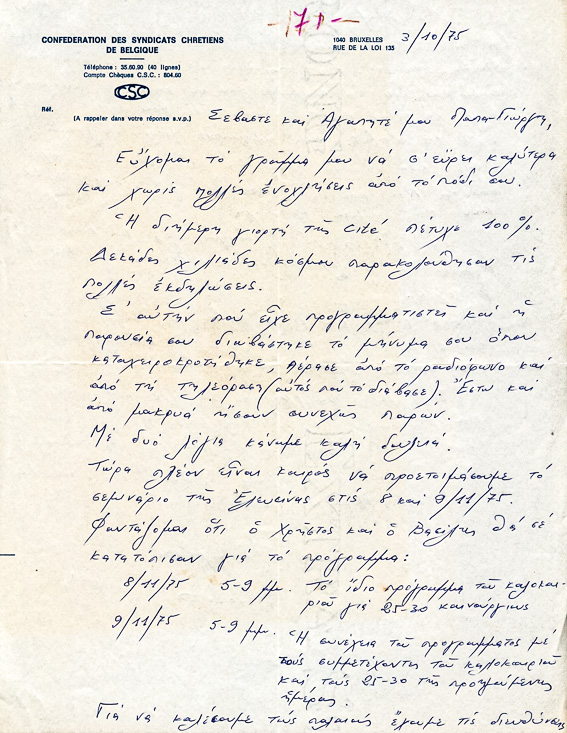 -17α-
CONFEDERATION DES SYNDICATS CHRETIENS
DE BELGIQUE
Téléphone : 35.60.90 (40 lignes)
Compte Chèques C.S.C. : 804.60
CSC
1040 BRUXELLES
RUE DE LA LOI 135
3/10/75
Réf.
(A rappeler dans votre réponse s.v.p.)
Σεβαστέ και Ἀγαπητέ μου Παπα-Γιώργη,
Εὔχομαι τό γράμμα μου νά σ' εὕρει καλύτερα
καί χωρίς πολλές ἐνοχλήσεις ἀπό τό πόδι σου.
Ἡ διήμερη γιορτή τῆς Cité πέτυχε 100%.
Δεκάδες χιλιάδες κόσμου παρακολούθησαν τις
πολλές ἐκδηλώσεις.
Σ' αὐτήν πού εἶχε προγραμματιστεῖ καί ἡ
παρουσία σου διαβάστηκε τό μήνυμα σου ὅπου
καταχειροκροτήθηκε, πέρασε ἀπό τό ραδιόφωνο καί
ἀπό τή τηλεόραση (αὐτός πού τό διάβασε). Ἔστω καί
ἀπό μακρυά ἤσουν συνεχῆς παρών.
Μέ δυό λόγια κάναμε καλή δουλειά.
Τώρα πλέον εἶναι καιρός νά προετοιμάσουμε τό
σεμινάριο τῆς Ἐλευσίνας στίς 8 καί 9/11/75.
Φαντάζομαι ὅτι ὁ Χρῆστος καί ὁ Βασίλης θά σέ
κατατόπισαν γιά τό πρόγραμμα:
8/11/75 5-9 μμ. Τό ἴδιο πρόγραμμα τοῦ καλοκαι-
ριοῦ γιά 25-30 καινούργιους
9/11/75 5-9 μμ. Ἡ συνέχεια τοῦ προγραμματος μέ
τούς συμμετέχοντες τοῦ καλοκαιριοῦ
καί τούς 25-30 τῆς προηγούμενης
ἡμέρας.
Γιά νά καλέσουμε τούς παλαιούς ἔχουμε τίς διευθύνσεις